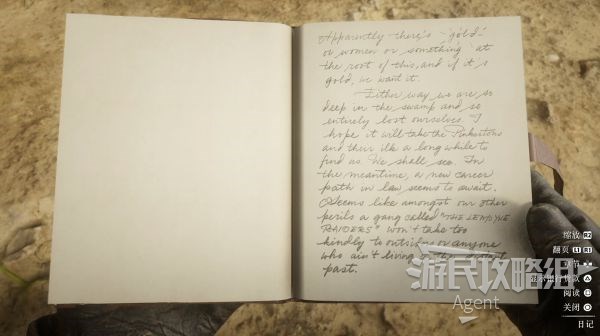 Apparently there's "gold"
or women or something at
the root of this, and if it's
gold, we want it.
Either way we are so
deep in the swamp and so
entirely lost ourselves. I
hope it will take the Pinkertons
and their ilk a long while to
find us. We shall see. In
the meantime, a new career
path in law seems to await.
Seems like amongst our other
perils a gang called "THE LEMOYNE
RAIDERS" won't take too
kindly to or anyone
who ain't living
past.
游民攻略组
Agent
缩放 R2
翻页 L1 R1
阅读
关闭
日记